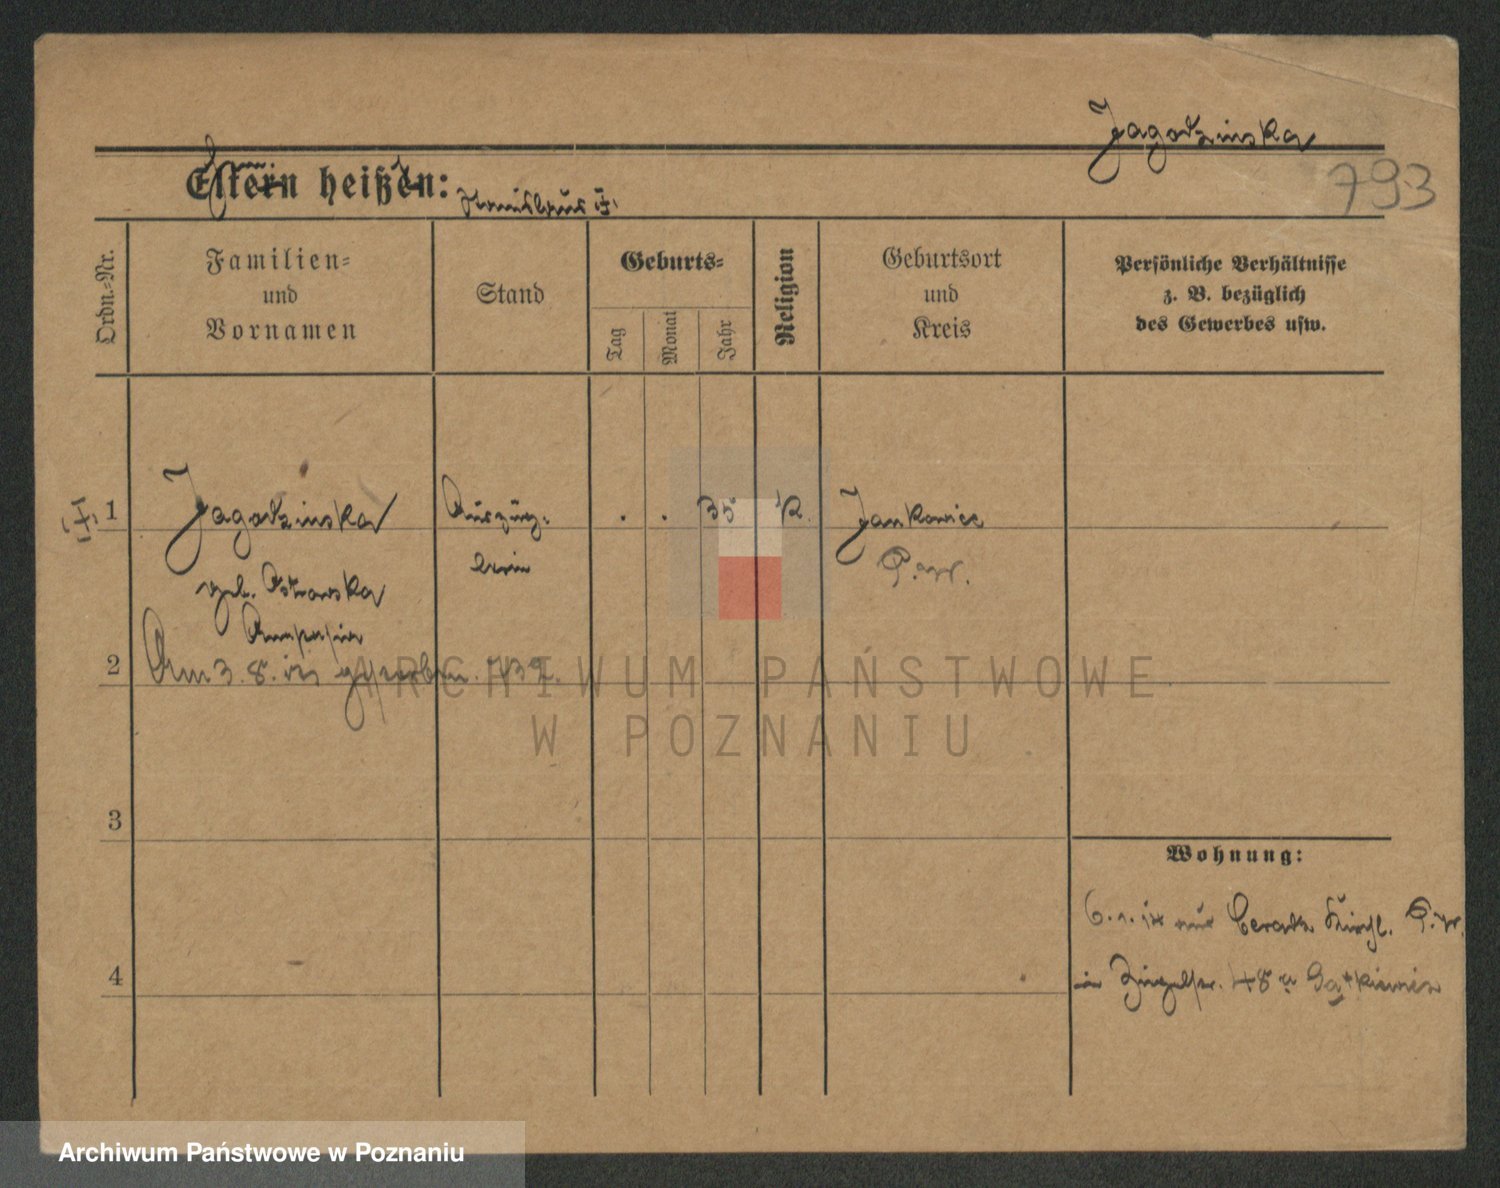 Jagodzinska
793
Eltern heißen:
Stanislaus †
Ordn.-Nr.
Familien-
und
Vornamen
Stand
Geburts-
Tag
Monat
Jahr
Religion
Geburtsort
und
Kreis
Persönliche Verhältnisse
z. B. bezüglich
des Gewerbes usw.
1
Jagodzinska
Auszüg-
lerin
. . 35
K.
Jankowice
P. W.
geb. Ostrowska
2
Am 3. 8.
3
Wohnung:
6. 1. 14 aus Ceradz Kirchl. P. W.
4
in 48
ARCHIWUM PAŃSTWOWE
W POZNANIU
Archiwum Państwowe w Poznaniu